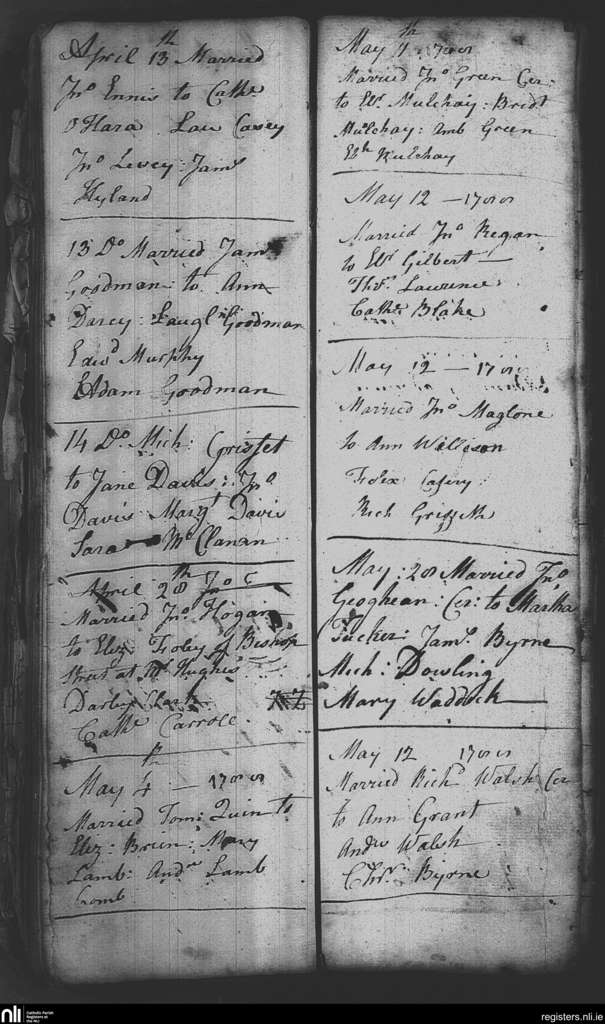 April 13th Married
Jno Ennis to Cathe
O Hara Lau Casey
Jno Levey: Jams
Hyland
13 Do Married Jams
Goodman to Ann
Darcy: Goodman
Edwd Murphy
Adam Goodman
14 Do Mich: Grisset
to Jane Davis: Jno
Davis Margt Davis
Sara McClanan
April 28th Jno
Married Jno Hogan
to Eliz: Foley of Bishop
Street at Mr Hughes
Darby Clark
Cathe Carroll
May 4th — 1788
Married Tom: Quin to
Eliz: Brien: Mary
Lamb: Andw Lamb
May 7th 1788
Married Jno Green Cer:
to Elr Mulchay: Bridt
Mulchay: Amb Green
Elh Mulchay
May 12 — 1788
Married Jno Regan
to Elr Gilbert
Thos. Lawrence
Cathe Blake
May 12 — 1788
Married Jno Maglone
to Ann Willison
Felix
Rich Griffith
May: 28 Married Jno
Geoghean: Cer: to Martha
Tucker: Jams. Byrne
Mich: Dowling
Mary Waddock
May 12 1788
Married Richd Walsh Cer
to Ann Grant
Andw Walsh
Chrr. Byrne
nli
Catholic Parish
Registers at
the NLI
registers.nli.ie